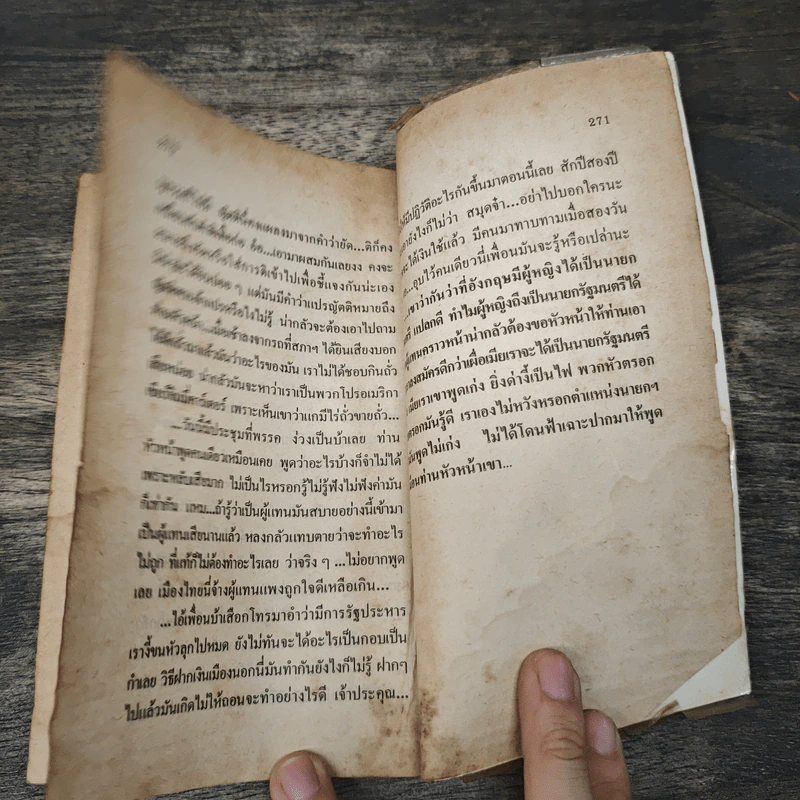 ติก็คง
...เอามาผสมกันเลยงง คงจะ
ใส้การติเข้าไปเพื่อชี้แจงกันน่ะเอง
ๆ แต่มันมีคำว่าแปรญัตติหมายถึง
หรือไงไม่รู้ น่ากลัวจะต้องเอาไปถาม
เข้าลงจากรถที่สภาฯ ได้ยินเสียงบอก
แล้วมันว่าอะไรของมัน เราไม่ได้ชอบกินถั่ว
น่ากลัวมันจะหาว่าเราเป็นพวกโปรอเมริกา
เพราะเห็นเขาว่าแกมีไร่ถั่วขายถั่ว...
...วันนี้มีประชุมที่พรรค ง่วงเป็นบ้าเลย ท่าน
หัวหน้าพูดคนเดียวเหมือนเคย พูดว่าอะไรบ้างก็จำไม่ได้
เพราะหลับเสียมาก ไม่เป็นไรหรอกรู้ไม่รู้ฟังไม่ฟังค่ามัน
ก็เท่ากัน แหม...ถ้ารู้ว่าเป็นผู้แทนมันสบายอย่างนี้เข้ามา
เป็นผู้แทนเสียนานแล้ว หลงกลัวแทบตายว่าจะทำอะไร
ไม่ถูก ที่แท้ก็ไม่ต้องทำอะไรเลย ว่าจริง ๆ ...ไม่อยากพูด
เลย เมืองไทยนี้จ้างผู้แทนแพงถูกใจดีเหลือเกิน...
...ไอ้เพื่อนบ้าเสือกโทรมาอำว่ามีการรัฐประหาร
เรางี้ขนหัวลุกไปหมด ยังไม่ทันจะได้อะไรเป็นกอบเป็น
กำเลย วิธีฝากเงินเมืองนอกนี่มันทำกันยังไงก็ไม่รู้ ฝากๆ
ไปแล้วมันเกิดไม่ให้ถอนจะทำอย่างไรดี เจ้าประคุณ...
271
มีปฏิวัติอะไรกันขึ้นมาตอนนี้เลย สักปีสองปี
ยังไงก็ไม่ว่า สมุดจ๋า...อย่าไปบอกใครนะ
ได้เงินใช้แล้ว มีคนมาทาบทามเมื่อสองวัน
...อุบไว้คนเดียวนี่เพื่อนมันจะรู้หรือเปล่านะ
เขาว่ากันว่าที่อังกฤษมีผู้หญิงได้เป็นนายก
แปลกดี ทำไมผู้หญิงถึงเป็นนายกรัฐมนตรีได้
ผู้แทนคราวหน้าน่ากลัวต้องขอหัวหน้าให้ท่านเอา
ลงสมัครดีกว่าเผื่อเมียเราจะได้เป็นนายกรัฐมนตรี
เมียเราเขาพูดเก่ง ยิ่งด่างี้เป็นไฟ พวกหัวตรอก
ตรอกมันรู้ดี เราเองไม่หวังหรอกตำแหน่งนายกฯ
พูดไม่เก่ง ไม่ได้โดนฟ้าเฉาะปากมาให้พูด
ท่านหัวหน้าเขา...